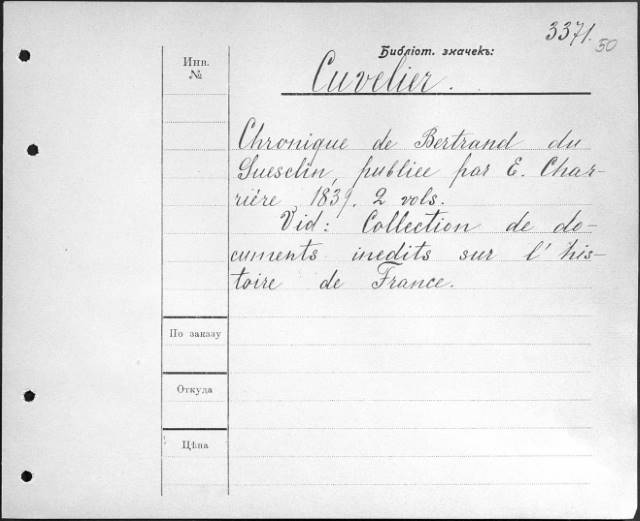 3371.
50
Библіот. значекъ:
Инв.
№
Cuvelier.
Chronique de Bertrand du
Guesclin, publiée par E. Char-
rière, 1839. 2 vols.
Vid: Collection de do-
cuments inedits sur l'his-
toire de France.
По заказу
Откуда
Цѣна